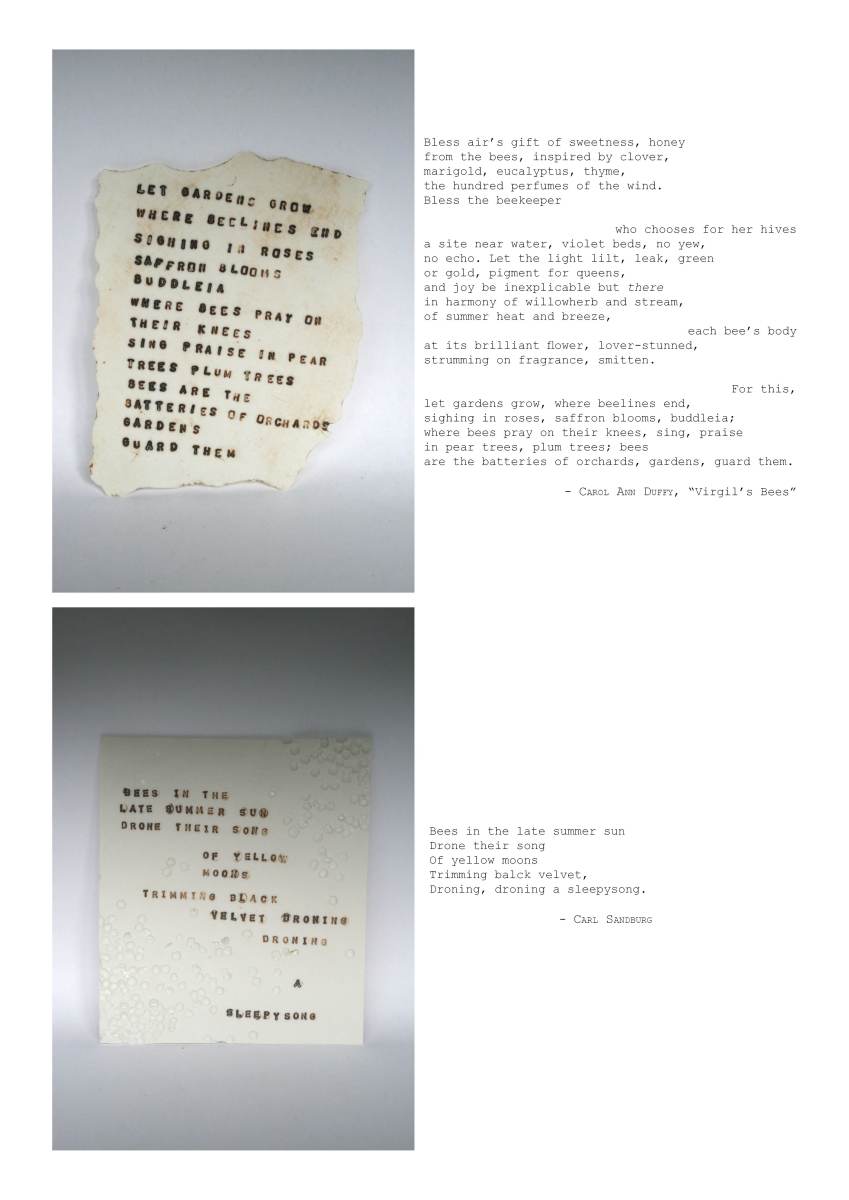 LET GARDENS GROW
WHERE BEELINES END
SIGHING IN ROSES
SAFFRON BLOOMS
BUDDLEIA
WHERE BEES PRAY ON
THEIR KNEES
SING PRAISE IN PEAR
TREES PLUM TREES
BEES ARE THE
BATTERIES OF ORCHARDS
GARDENS
GUARD THEM
Bless air's gift of sweetness, honey
from the bees, inspired by clover,
marigold, eucalyptus, thyme,
the hundred perfumes of the wind.
Bless the beekeeper
who chooses for her hives
a site near water, violet beds, no yew,
no echo. Let the light lilt, leak, green
or gold, pigment for queens,
and joy be inexplicable but there
in harmony of willowherb and stream,
of summer heat and breeze,
each bee's body
at its brilliant flower, lover-stunned,
strumming on fragrance, smitten.
For this,
let gardens grow, where beelines end,
sighing in roses, saffron blooms, buddleia;
where bees pray on their knees, sing, praise
in pear trees, plum trees; bees
are the batteries of orchards, gardens, guard them.
- Carol Ann Duffy, “Virgil's Bees”
BEES IN THE
LATE SUMMER SUN
DRONE THEIR SONG
OF YELLOW
MOONS
TRIMMING BLACK
VELVET DRONING
DRONING
A
SLEEPYSONG
Bees in the late summer sun
Drone their song
Of yellow moons
Trimming balck velvet,
Droning, droning a sleepysong.
- Carl Sandburg